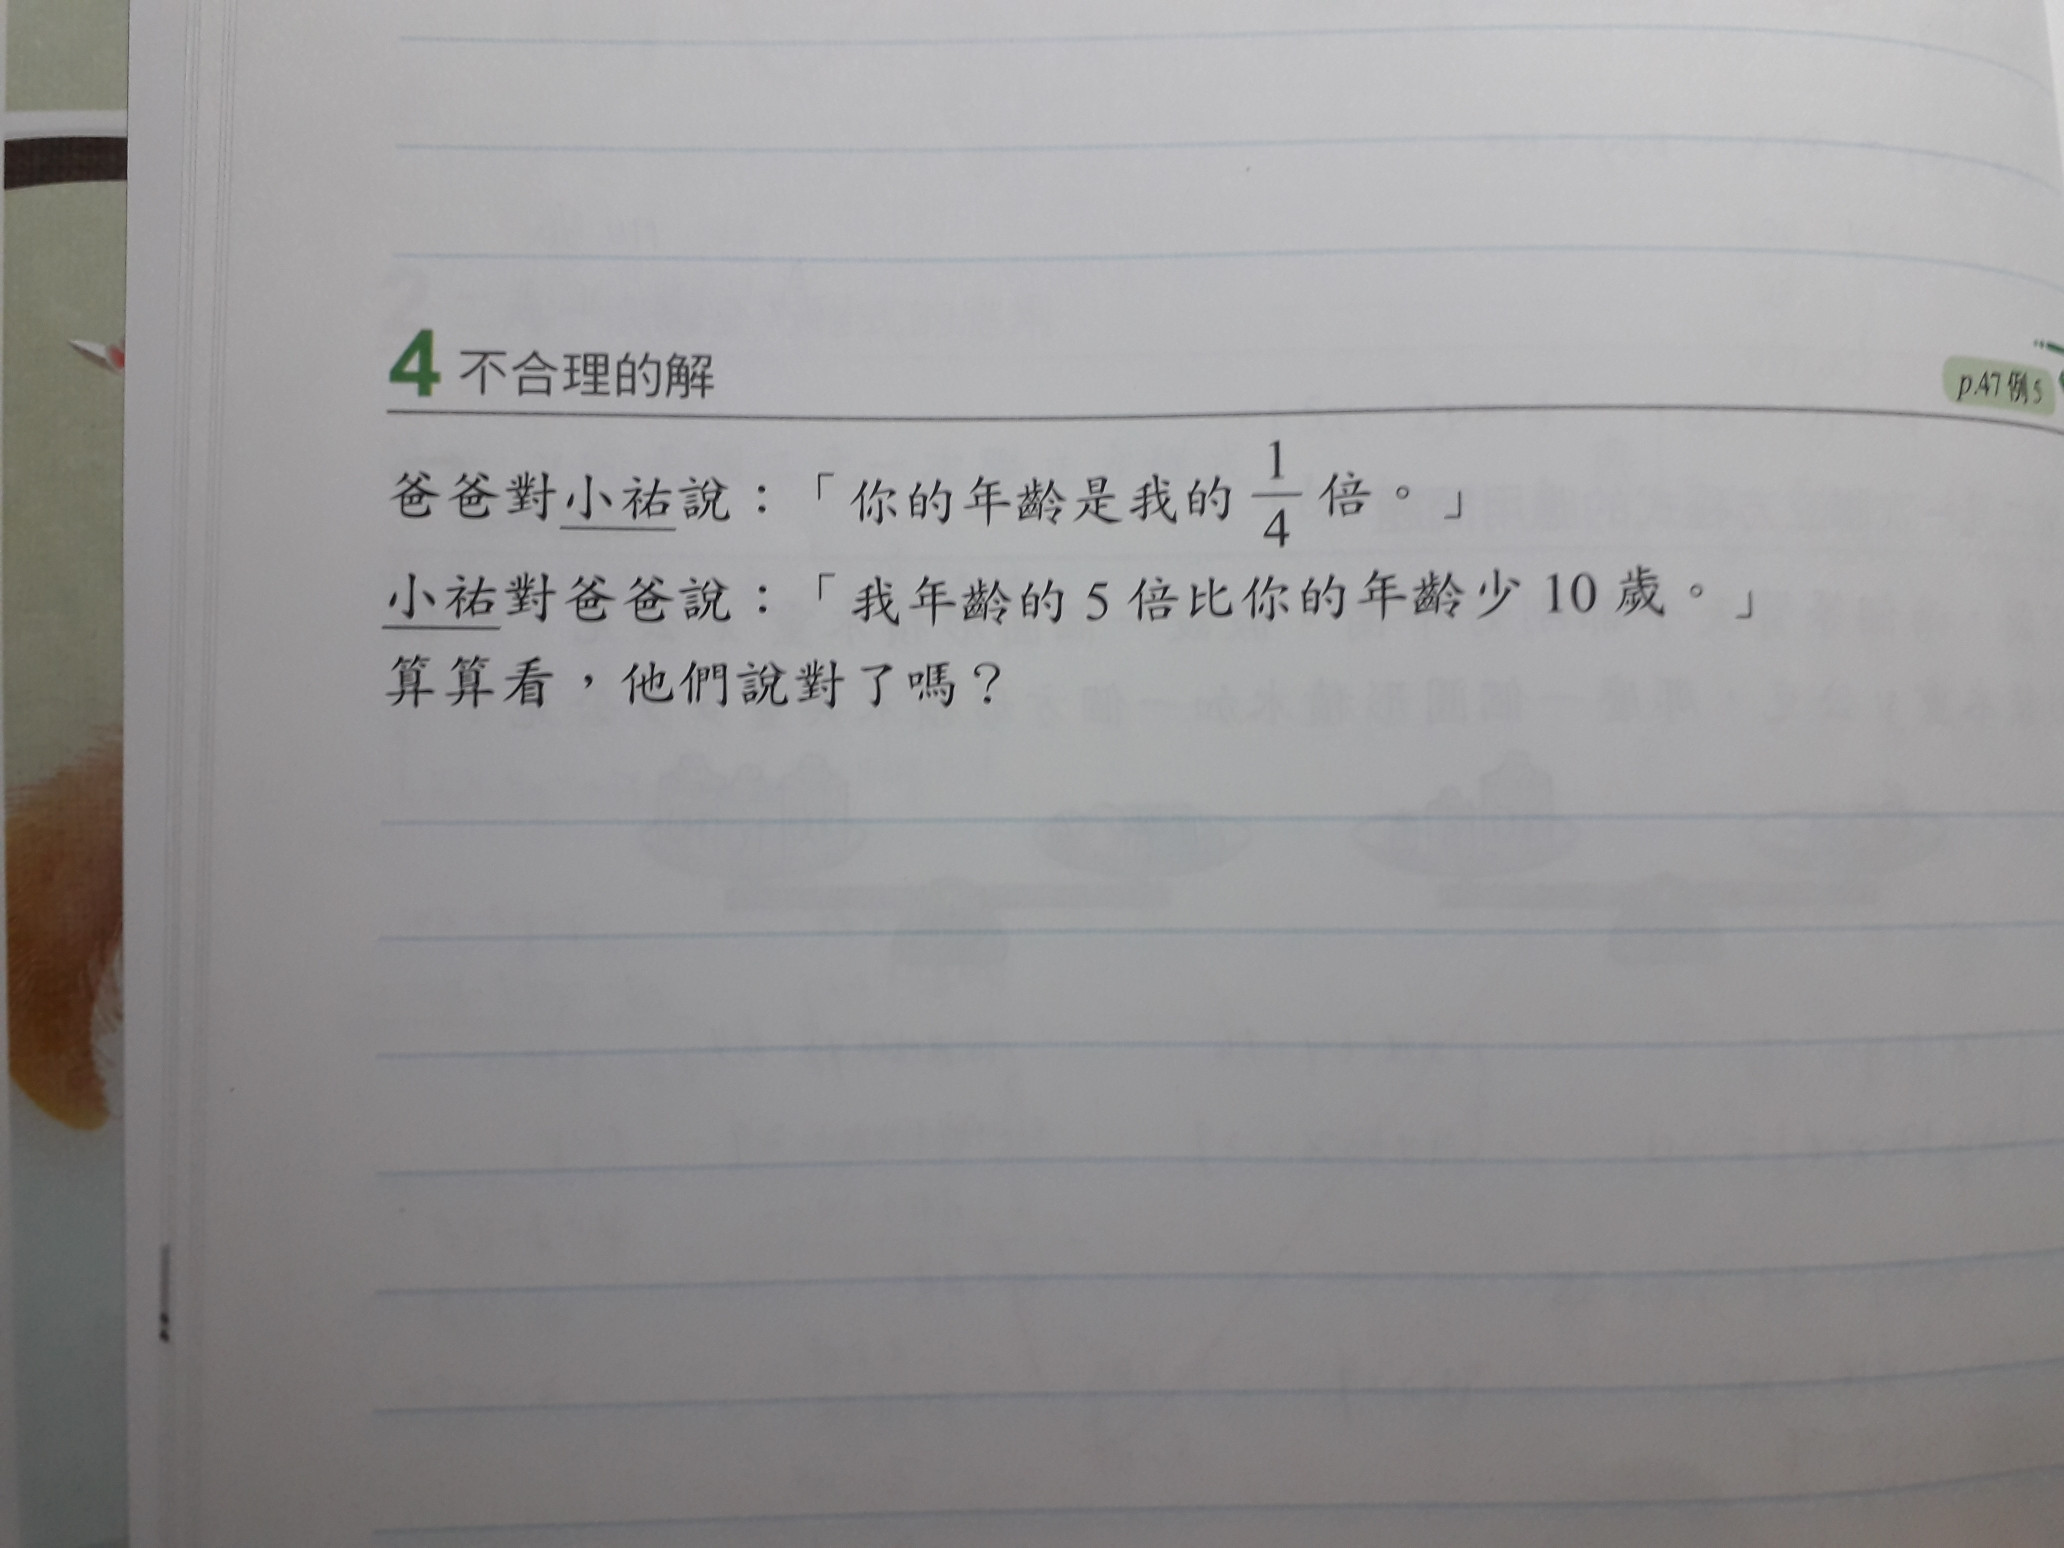 4 不合理的解
p.47例5
爸爸對小祐說：「你的年齡是我的 1/4 倍。」
小祐對爸爸說：「我年齡的 5 倍比你的年齡少 10 歲。」
算算看，他們說對了嗎？